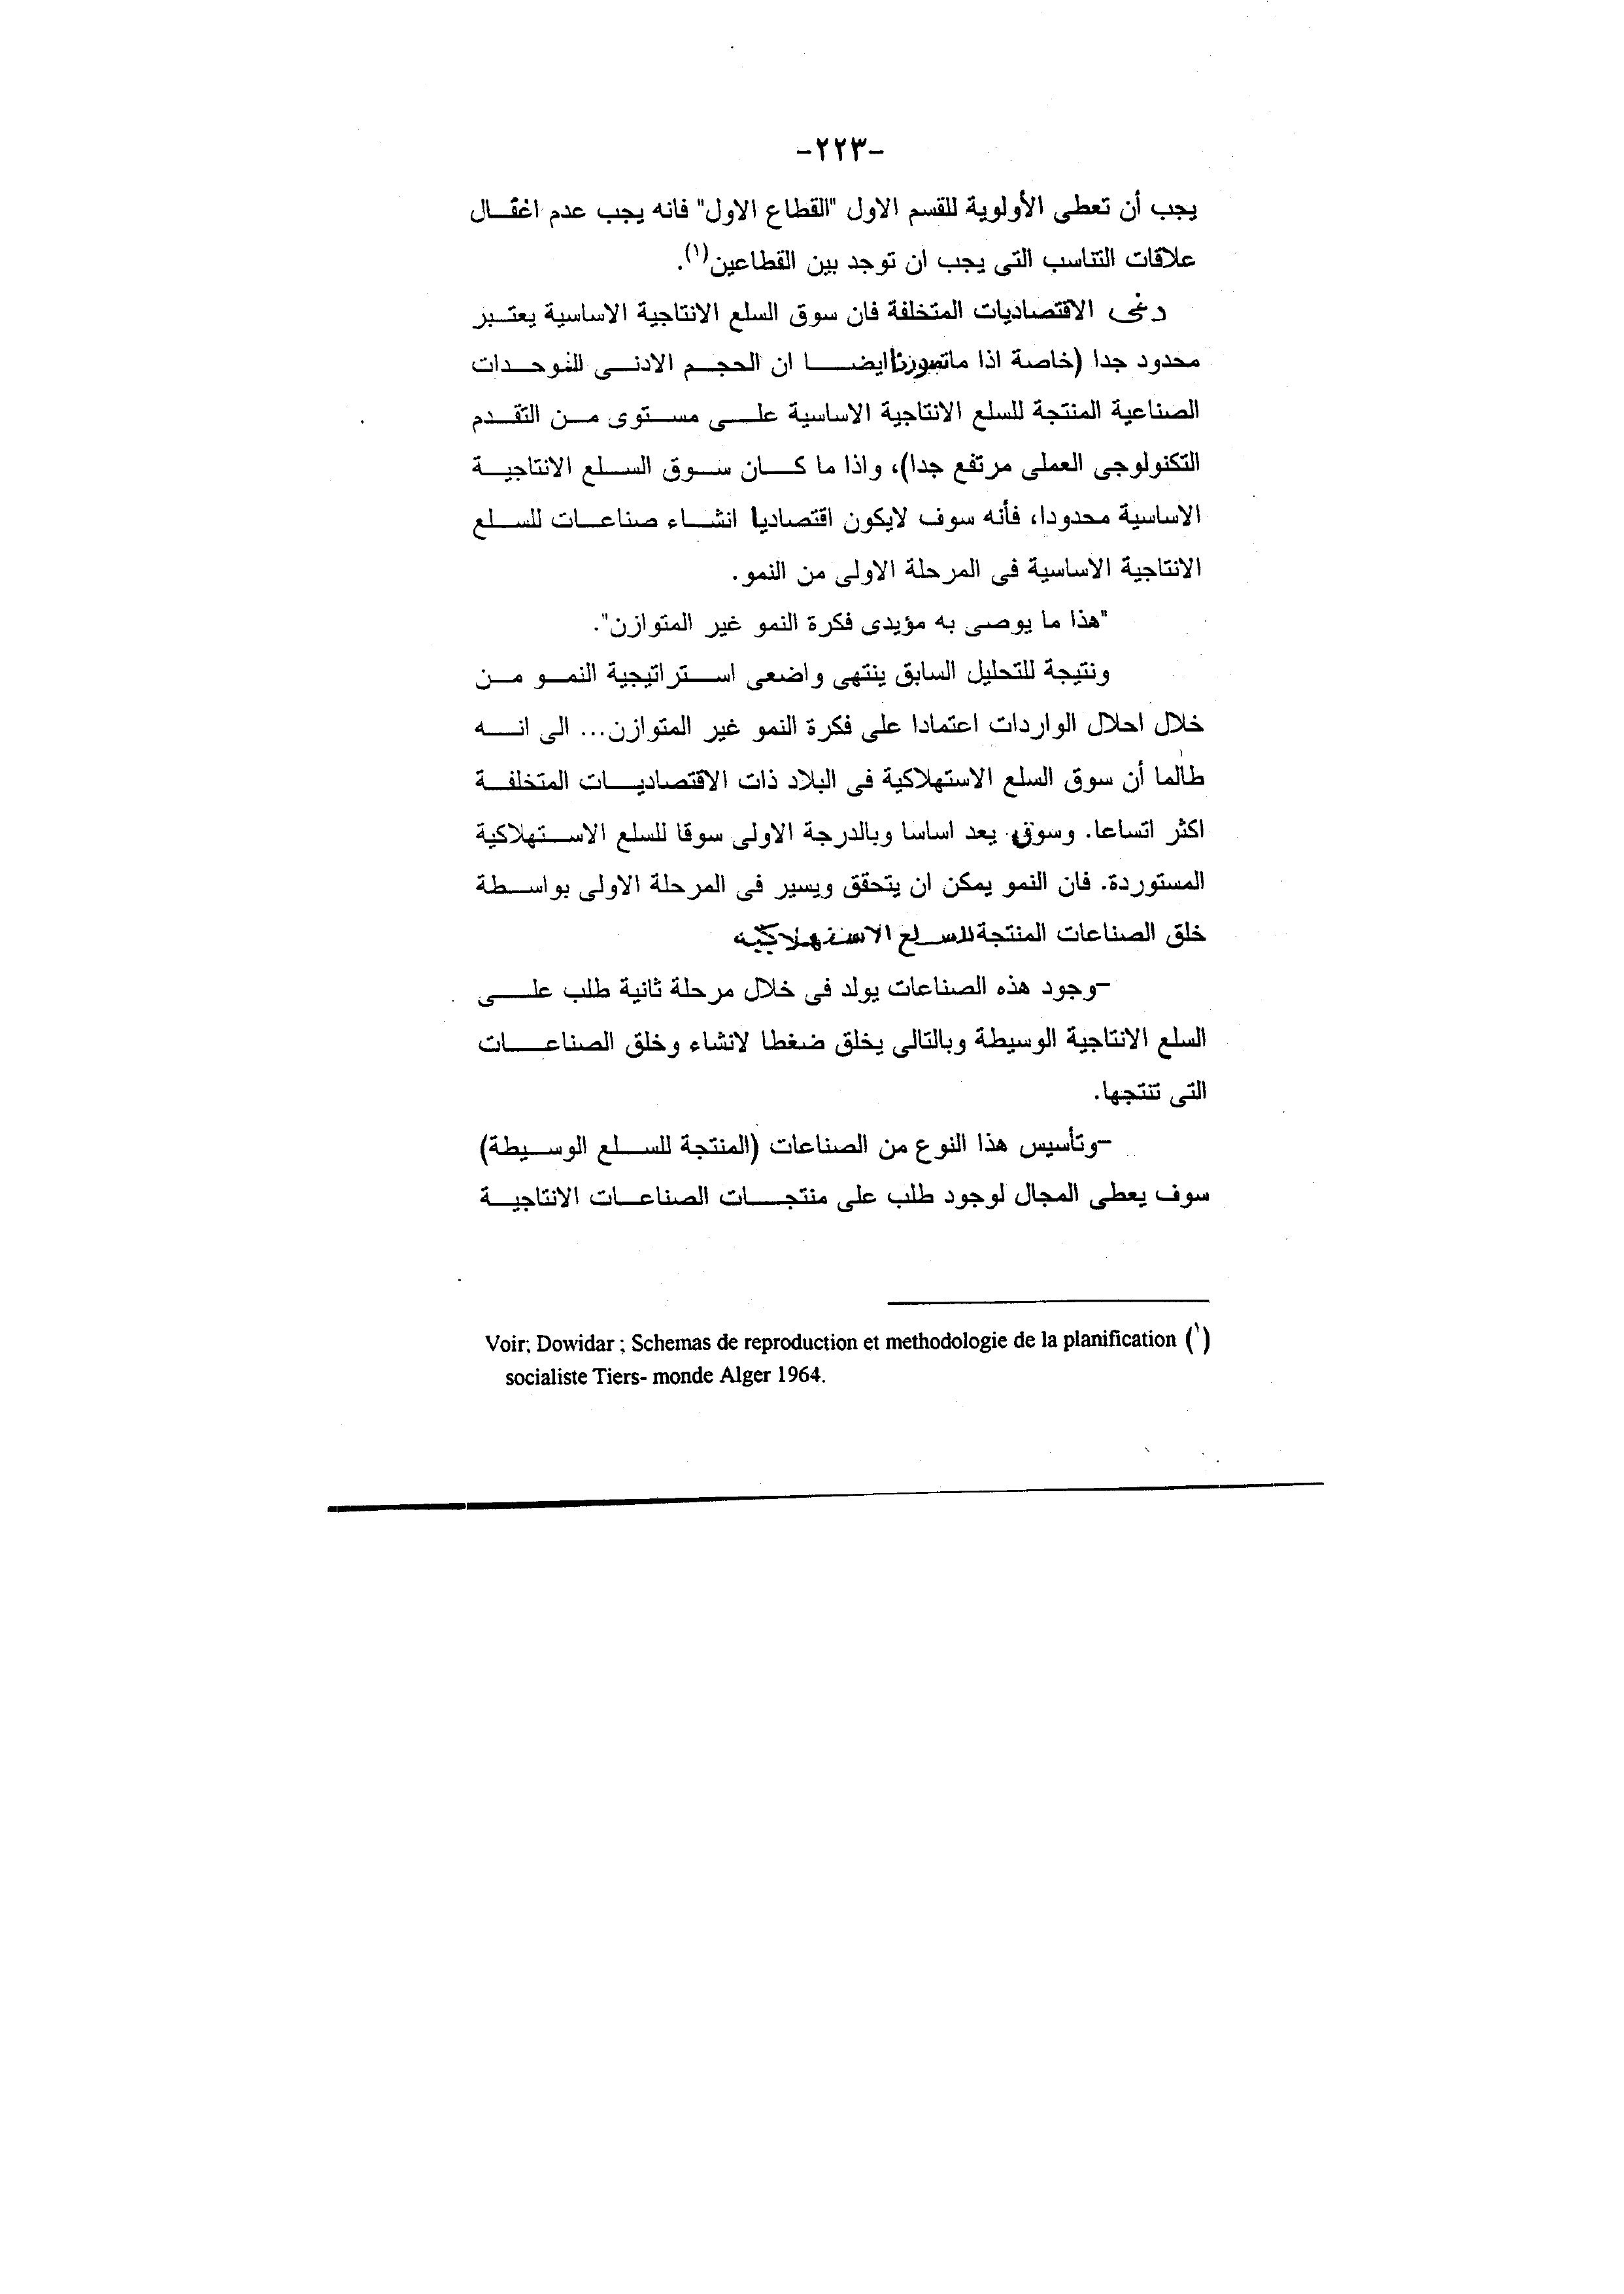 -٢٢٣-
يجب أن تعطى الأولوية للقسم الاول "القطاع الاول" فانه يجب عدم اغفال
علاقات التناسب التى يجب ان توجد بين القطاعين(١).
وفى الاقتصاديات المتخلفة فان سوق السلع الانتاجية الاساسية يعتبر
محدود جدا (خاصة اذا ماتصورنا ايضا ان الحجم الادنى للوحدات
الصناعية المنتجة للسلع الانتاجية الاساسية على مستوى من التقدم
التكنولوجى العملى مرتفع جدا)، واذا ما كان سوق السلع الانتاجية
الاساسية محدودا، فأنه سوف لايكون اقتصاديا انشاء صناعات للسلع
الانتاجية الاساسية فى المرحلة الاولى من النمو.
"هذا ما يوصى به مؤيدى فكرة النمو غير المتوازن".
ونتيجة للتحليل السابق ينتهى واضعى استراتيجية النمو من
خلال احلال الواردات اعتمادا على فكرة النمو غير المتوازن... الى انه
طالما أن سوق السلع الاستهلاكية فى البلاد ذات الاقتصاديات المتخلفة
اكثر اتساعا. وسوق يعد اساسا وبالدرجة الاولى سوقا للسلع الاستهلاكية
المستوردة. فان النمو يمكن ان يتحقق ويسير فى المرحلة الاولى بواسطة
خلق الصناعات المنتجة للسلع الاستهلاكية
-وجود هذه الصناعات يولد فى خلال مرحلة ثانية طلب على
السلع الانتاجية الوسيطة وبالتالى يخلق ضغطا لانشاء وخلق الصناعات
التى تنتجها.
-وتأسيس هذا النوع من الصناعات (المنتجة للسلع الوسيطة)
سوف يعطى المجال لوجود طلب على منتجات الصناعات الانتاجية
Voir; Dowidar ; Schemas de reproduction et methodologie de la planification (١)
socialiste Tiers- monde Alger 1964.